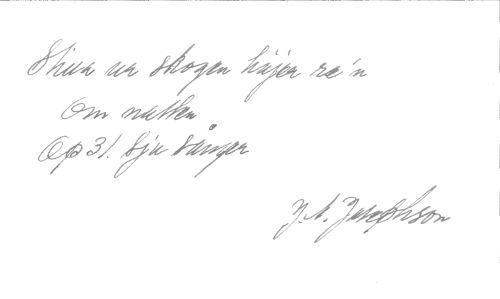 Shiua ur skogen höjer ra'n
Om natten
Op 31. Sju sånger
J. A. Josephson